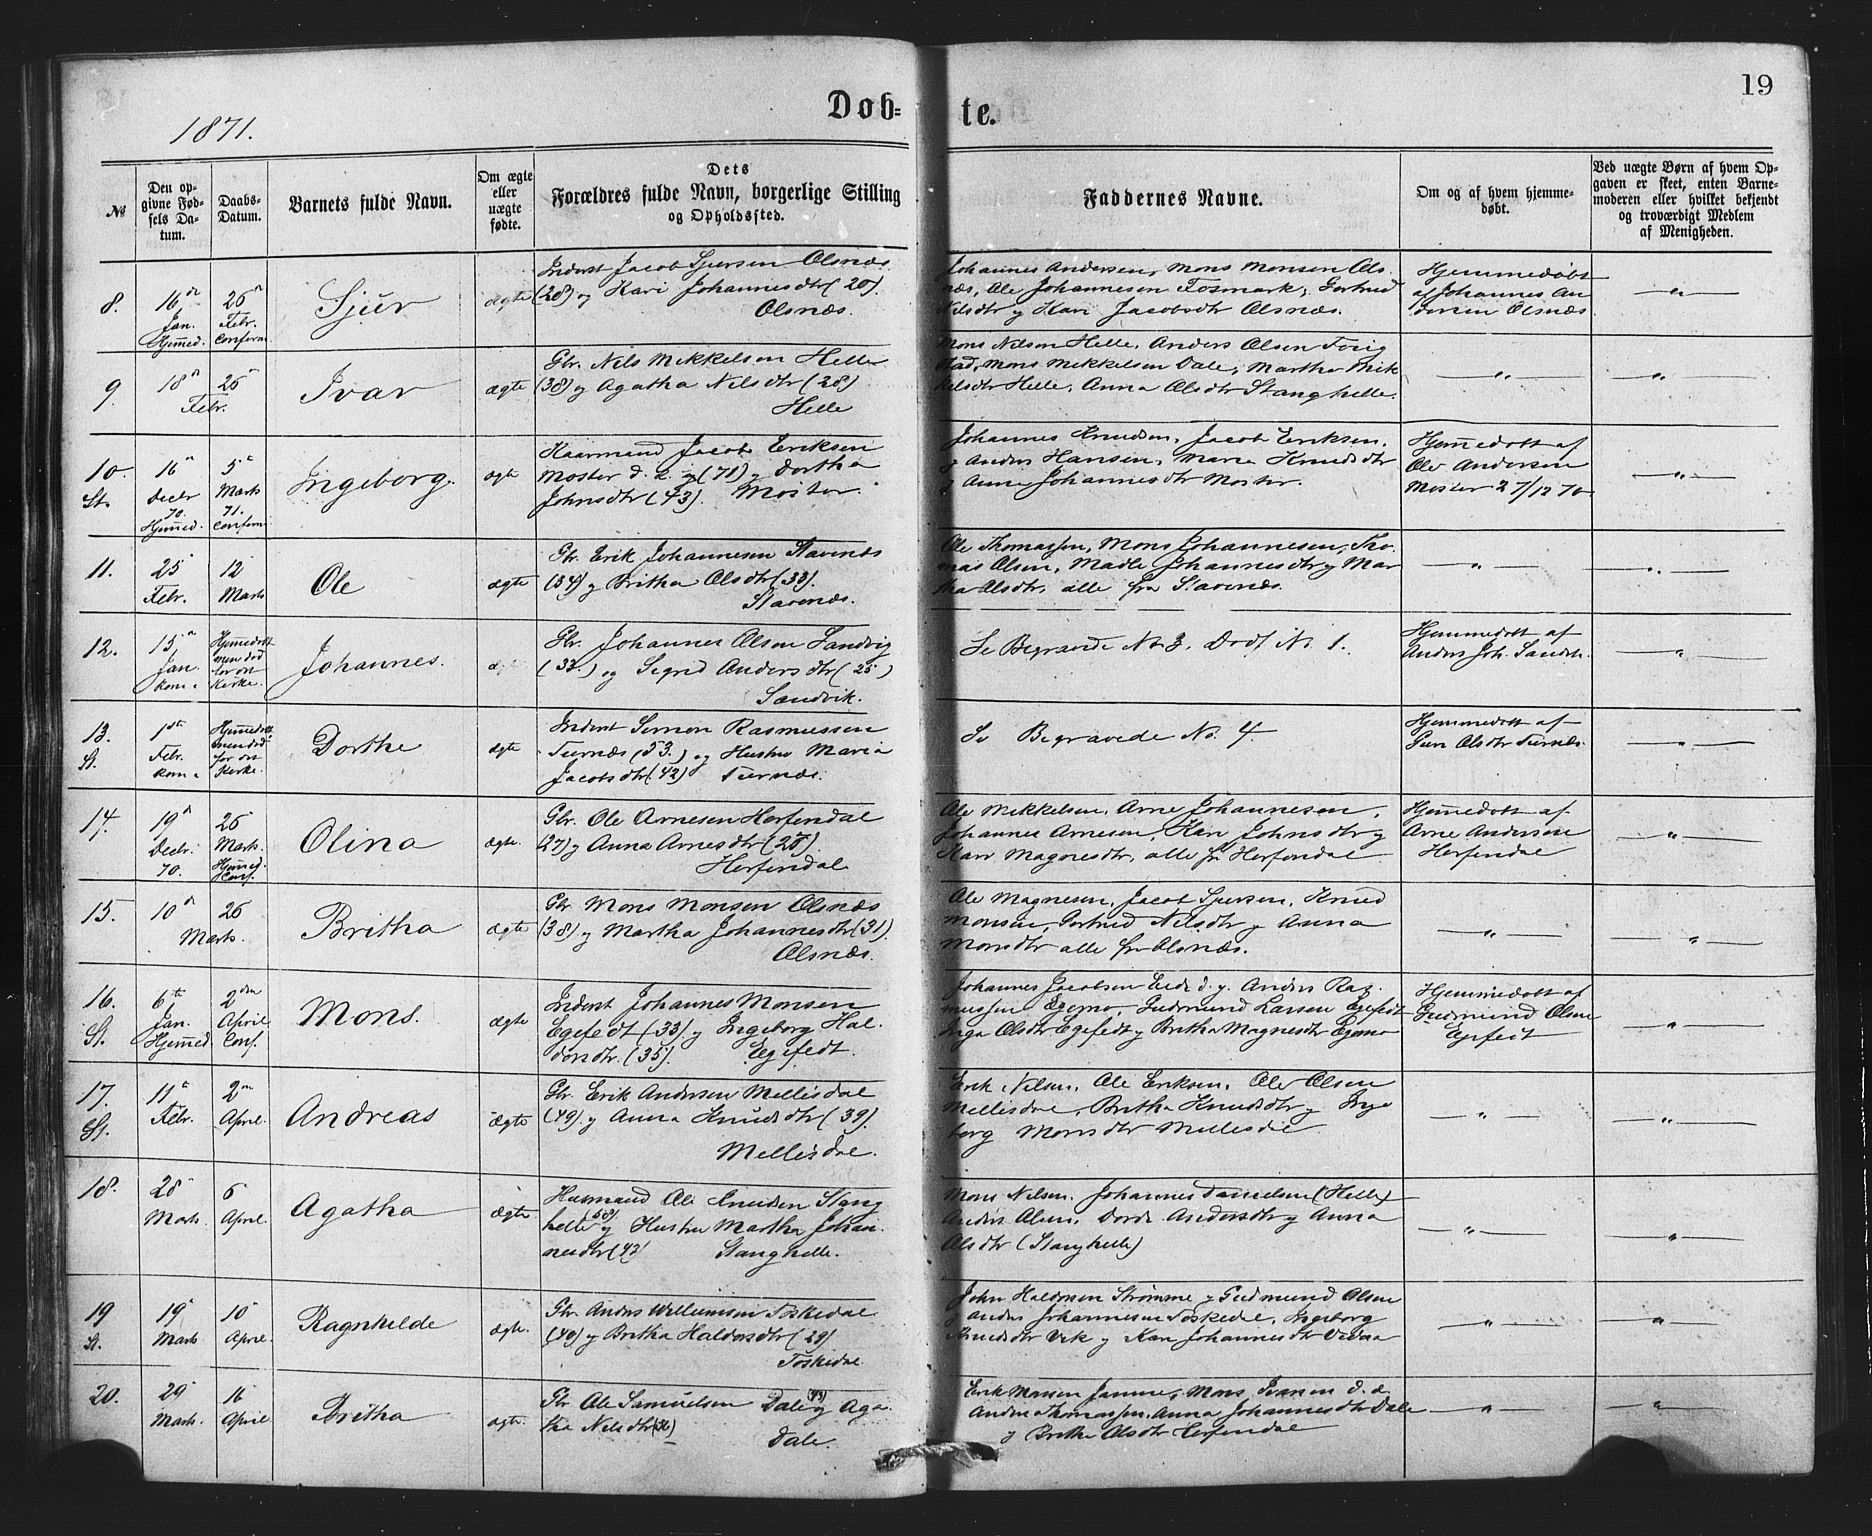 19
Døb- te.
1871.
№
Den op-
givne Fød-
sels Da-
tum.
Daabs-
Datum.
Barnets fulde Navn.
Om ægte
eller
uægte
fødte.
Dets
Forældres fulde Navn, borgerlige Stilling
og Opholdssted.
Faddernes Navne.
Om og af hvem hjemme-
døbt.
Ved uægte Børn af hvem Op-
gaven er skeet, enten Barne-
moderen eller hvilket bekjendt
og troværdigt Medlem
af Menigheden.
8.
16de
Jan.
Hjemmed.
26de
Febr.
Confirm.
Sjur
ægte
Inderst Jacob Sjursen Olsnæs
(28) og Kari Johannesdtr (20).
Olsnæs.
Johannes Andersen, Mons Monsen Ols-
næs, Ole Johannesen Fosmark, Gertrud
Nilsdtr og Kari Jacobsdtr Olsnæs.
Hjemmedøbt
af Johannes An
dersen Olsnæs
9.
18de 26
Febr.
Ivar
ægte
Gbr. Nils Mikkelsen Helle
(38) og Agatha Nilsdtr (28)
Helle
Mons Nilsen Helle, Anders Olsen
Mons Mikkelsen Dale, Martha Mik
kelsdtr Helle, Anna Olsdtr Stanghelle.
10.
St.
16de
Decbr
70.
Hjemmed.
5te
Marts
71.
Confirm
Ingeborg.
ægte
Kaarmand Jacob Eriksen
Moster d. æ. (71) og Dortha
Johnsdtr (43). Moster.
Johannes Knudsen, Jacob Eriksen,
og Anders Hansen, Maria Knudsdtr
og Anna Johannesdtr Moster.
Hjemmedøbt af
Ole Andersen
Moster 27/12 70
11.
25
Febr.
12
Marts
Ole
ægte
Gbr. Erik Johannesen Stavenæs
(34) og Britha Olsdtr (33).
Stavenæs.
Ole Thomassen, Mons Johannesen, Tho-
mas Olsen, Madle Johannesdtr og Mar
tha Olsdtr, alle fra Stavenæs.
12.
15de
Jan.
Hjemmedøbt
men død
før
Kirke.
Johannes.
ægte
Gbr. Johannes Olsen Sandvig
(33.) og Sigrid Andersdtr (25)
Sandvik.
Se Begravede No. 3. Dødf. No. 1.
Hjemmedøbt af
Anders Joh. Sandv.
13.
St.
1ste
Febr.
Hjemmedøbt
men død
før
Kirke.
Dorthe
ægte
Inderst Simon Rasmussen
Turnæs (53.) og Hustru Maria
Jacobsdtr (42) Turnæs.
Se Begravede No. 4.
Hjemmedøbt af
Guri Olsdtr Turnæs.
14.
19de
Decbr.
70.
26
Marts.
Hjemmed.
Conf.
Olina
ægte.
Gbr. Ole Arnesen Herfindal
(27) og Anna Arnesdtr (28).
Herfindal
Ole Mikkelsen, Arne Johannesen,
Johannes Arnesen, Kari Johnsdtr og
Kari Magnesdtr, alle fra Herfindal
Hjemmedøbt af
Arne Andersen
Herfindal
15.
10de 26
Marts.
Britha
ægte
Gbr. Mons Monsen Olsnæs
(38) og Martha Johannesdtr (31).
Olsnæs.
Ole Magnesen, Jacob Sjursen, Knud
Monsen, Gertrud Nilsdtr og Anna
Monsdtr alle fra Olsnæs.
16.
St.
6te
Jan.
Hjemmed
2den
April
Conf.
Mons.
ægte
Inderst Johannes Monsen
Egefedt (33) og Ingeborg Hal-
dorsdtr. (35). Egefedt.
Johannes Jacobsen Eide d. y. Anders Ras-
mussen Egemo, Gudmund Larsen Egefedt
Inga Olsdtr Egefedt og Britha Magnesdtr Egemo
Hjemmedøbt af
Gudmund Olsen
Egefedt
17.
St.
11te
Febr.
2den
April.
Andreas
ægte
Gbr. Erik Andersen Mellisdal
(49) og Anna Knudsdtr (39).
Mellisdal.
Erik Nilsen, Ole Eriksen, Ole Olsen
Mellisdal, Britha Knudsdtr og Inge
borg Monsdtr Mellisdal
18.
28
Marts.
6
April.
Agatha
ægte
Husmand Ole Knudsen Stang
helle (50) og Hustru Martha Johan-
nesdtr (42) Stanghelle.
Mons Nilsen, Johannes Danielsen (Helle)
Anders Olsen, Dorde Andersdtr og Anna
Olsdtr (Stanghelle)
19
St.
19
Marts
10
April.
Ragnhilde
ægte.
Gbr. Anders Williamsen Toskedal
(40) og Britha Haldorsdtr (29)
Toskedal
John Haldorsen Strømme og Gudmund Olsen
Anders Johannesen Toskedal, Ingeborg
Knudsdtr Vik og Kari Johannesdtr
20.
29
Marts.
16
April.
Britha
ægte.
Gbr Ole Samuelsen Dale (43) og Aga-
tha Nilsdtr (36)
Dale.
Erik Monsen Jamne, Mons Ivarsen d. æ.
Anders Thomassen, Anna Johannesdtr Dale
og Britha Olsdtr Herfindal